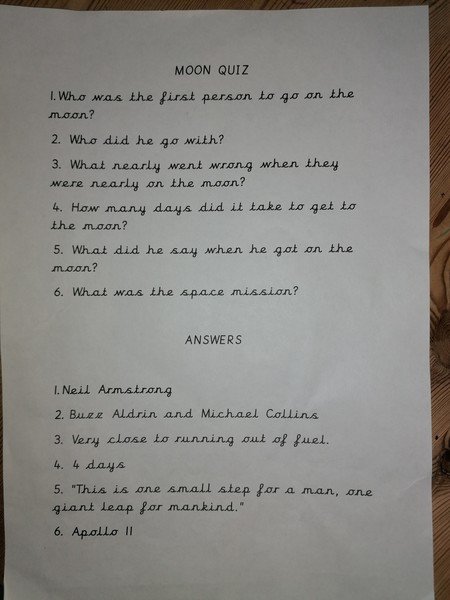 MOON QUIZ
1. Who was the first person to go on the
moon?
2. Who did he go with?
3. What nearly went wrong when they
were nearly on the moon?
4. How many days did it take to get to
the moon?
5. What did he say when he got on the
moon?
6. What was the space mission?
ANSWERS
1. Neil Armstrong
2. Buzz Aldrin and Michael Collins
3. Very close to running out of fuel.
4. 4 days
5. "This is one small step for a man, one
giant leap for mankind."
6. Apollo 11